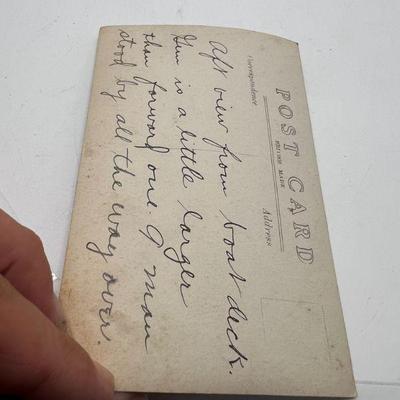 POST CARD
BRITISH MADE
Correspondence
Address
Aft view from boat deck.
Gun is a little larger
than forward one. 9 man
stood by all the way over.